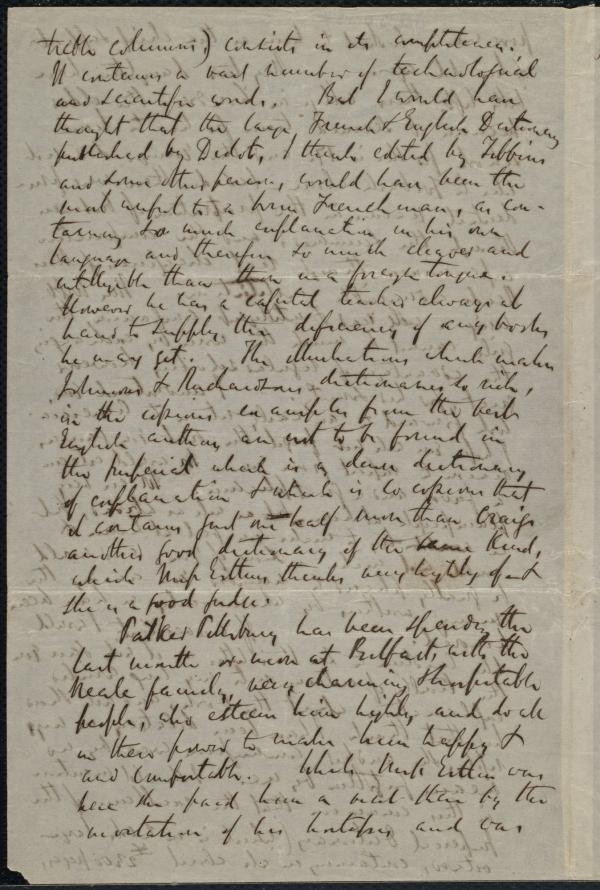 treble columns) consists in its completeness.
It contains a vast number of technological
and scientific words. But I would have
thought that the large French & English Dictionary
published by Didot, I think edited by Tibbins
and some other person, would have been the
most useful to a born Frenchman, as con-
taining so much explanation in his own
language and therefore so much clearer and
intelligible than in a foreign tongue.
However he has a capital teacher always at
hand to supply the deficiency of any books
he may get. The illustrations which makes
Johnsons & Richardsons dictionaries so rich,
in the copious examples from the best
English authors are not to be found in
the Imperial which is a dense dictionary
of explanation & which is so copious that
it contains just one half more than Craigs
another good dictionary of the same kind,
which Miss Estlin thinks very highly of &
she is a good judge.
Parker Pillsbury has been spending the
last month or more at Belfast, with the
Neale family, very charming & hospitable
people, who esteem him highly and do all
in their power to make him happy &
and comfortable. While Miss Estlin was
here she paid him a visit then by the
invitation of his hostess, and was